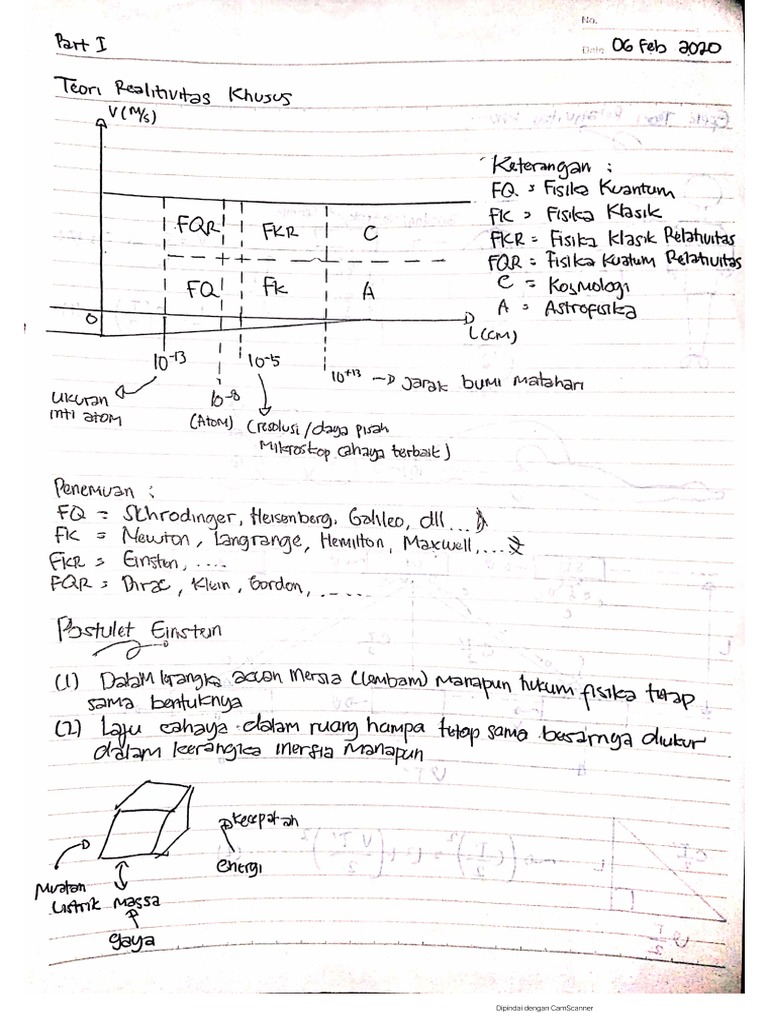 No.
Part I
Date 06 Feb 2020
Teori Realitivitas Khusus
V (m/s)
Keterangan :
FQ = Fisika Kuantum
FK = Fisika Klasik
FKR = Fisika Klasik Relativitas
FQR = Fisika Kuatum Relativitas
C = Kosmologi
A = Astrofisika
FQR FKR C
FQ FK A
0
L (cm)
10^-13 10^-8 10^-5 10^+13 → Jarak bumi matahari
Ukuran inti atom
(Atom)
(resolusi / daya pisah
Mikroskop cahaya terbaik)
Penemuan :
FQ = Schrodinger, Heisenberg, Galileo, dll ...
FK = Newton, Langrange, Hemilton, Maxwell, ....
FKR = Einsten, ....
FQR = Dirac, Klein, Gordon, ......
Postulet Einstein
(1) Dalam kerangka acuan Inersia (Lembam) manapun hukum fisika tetap
sama bentuknya
(2) Laju cahaya dalam ruang hampa tetap sama besarnya diukur
dalam kerangka inersia manapun
kecepatan
energi
Muatan
Listrik
Massa
gaya
Dipindai dengan CamScanner